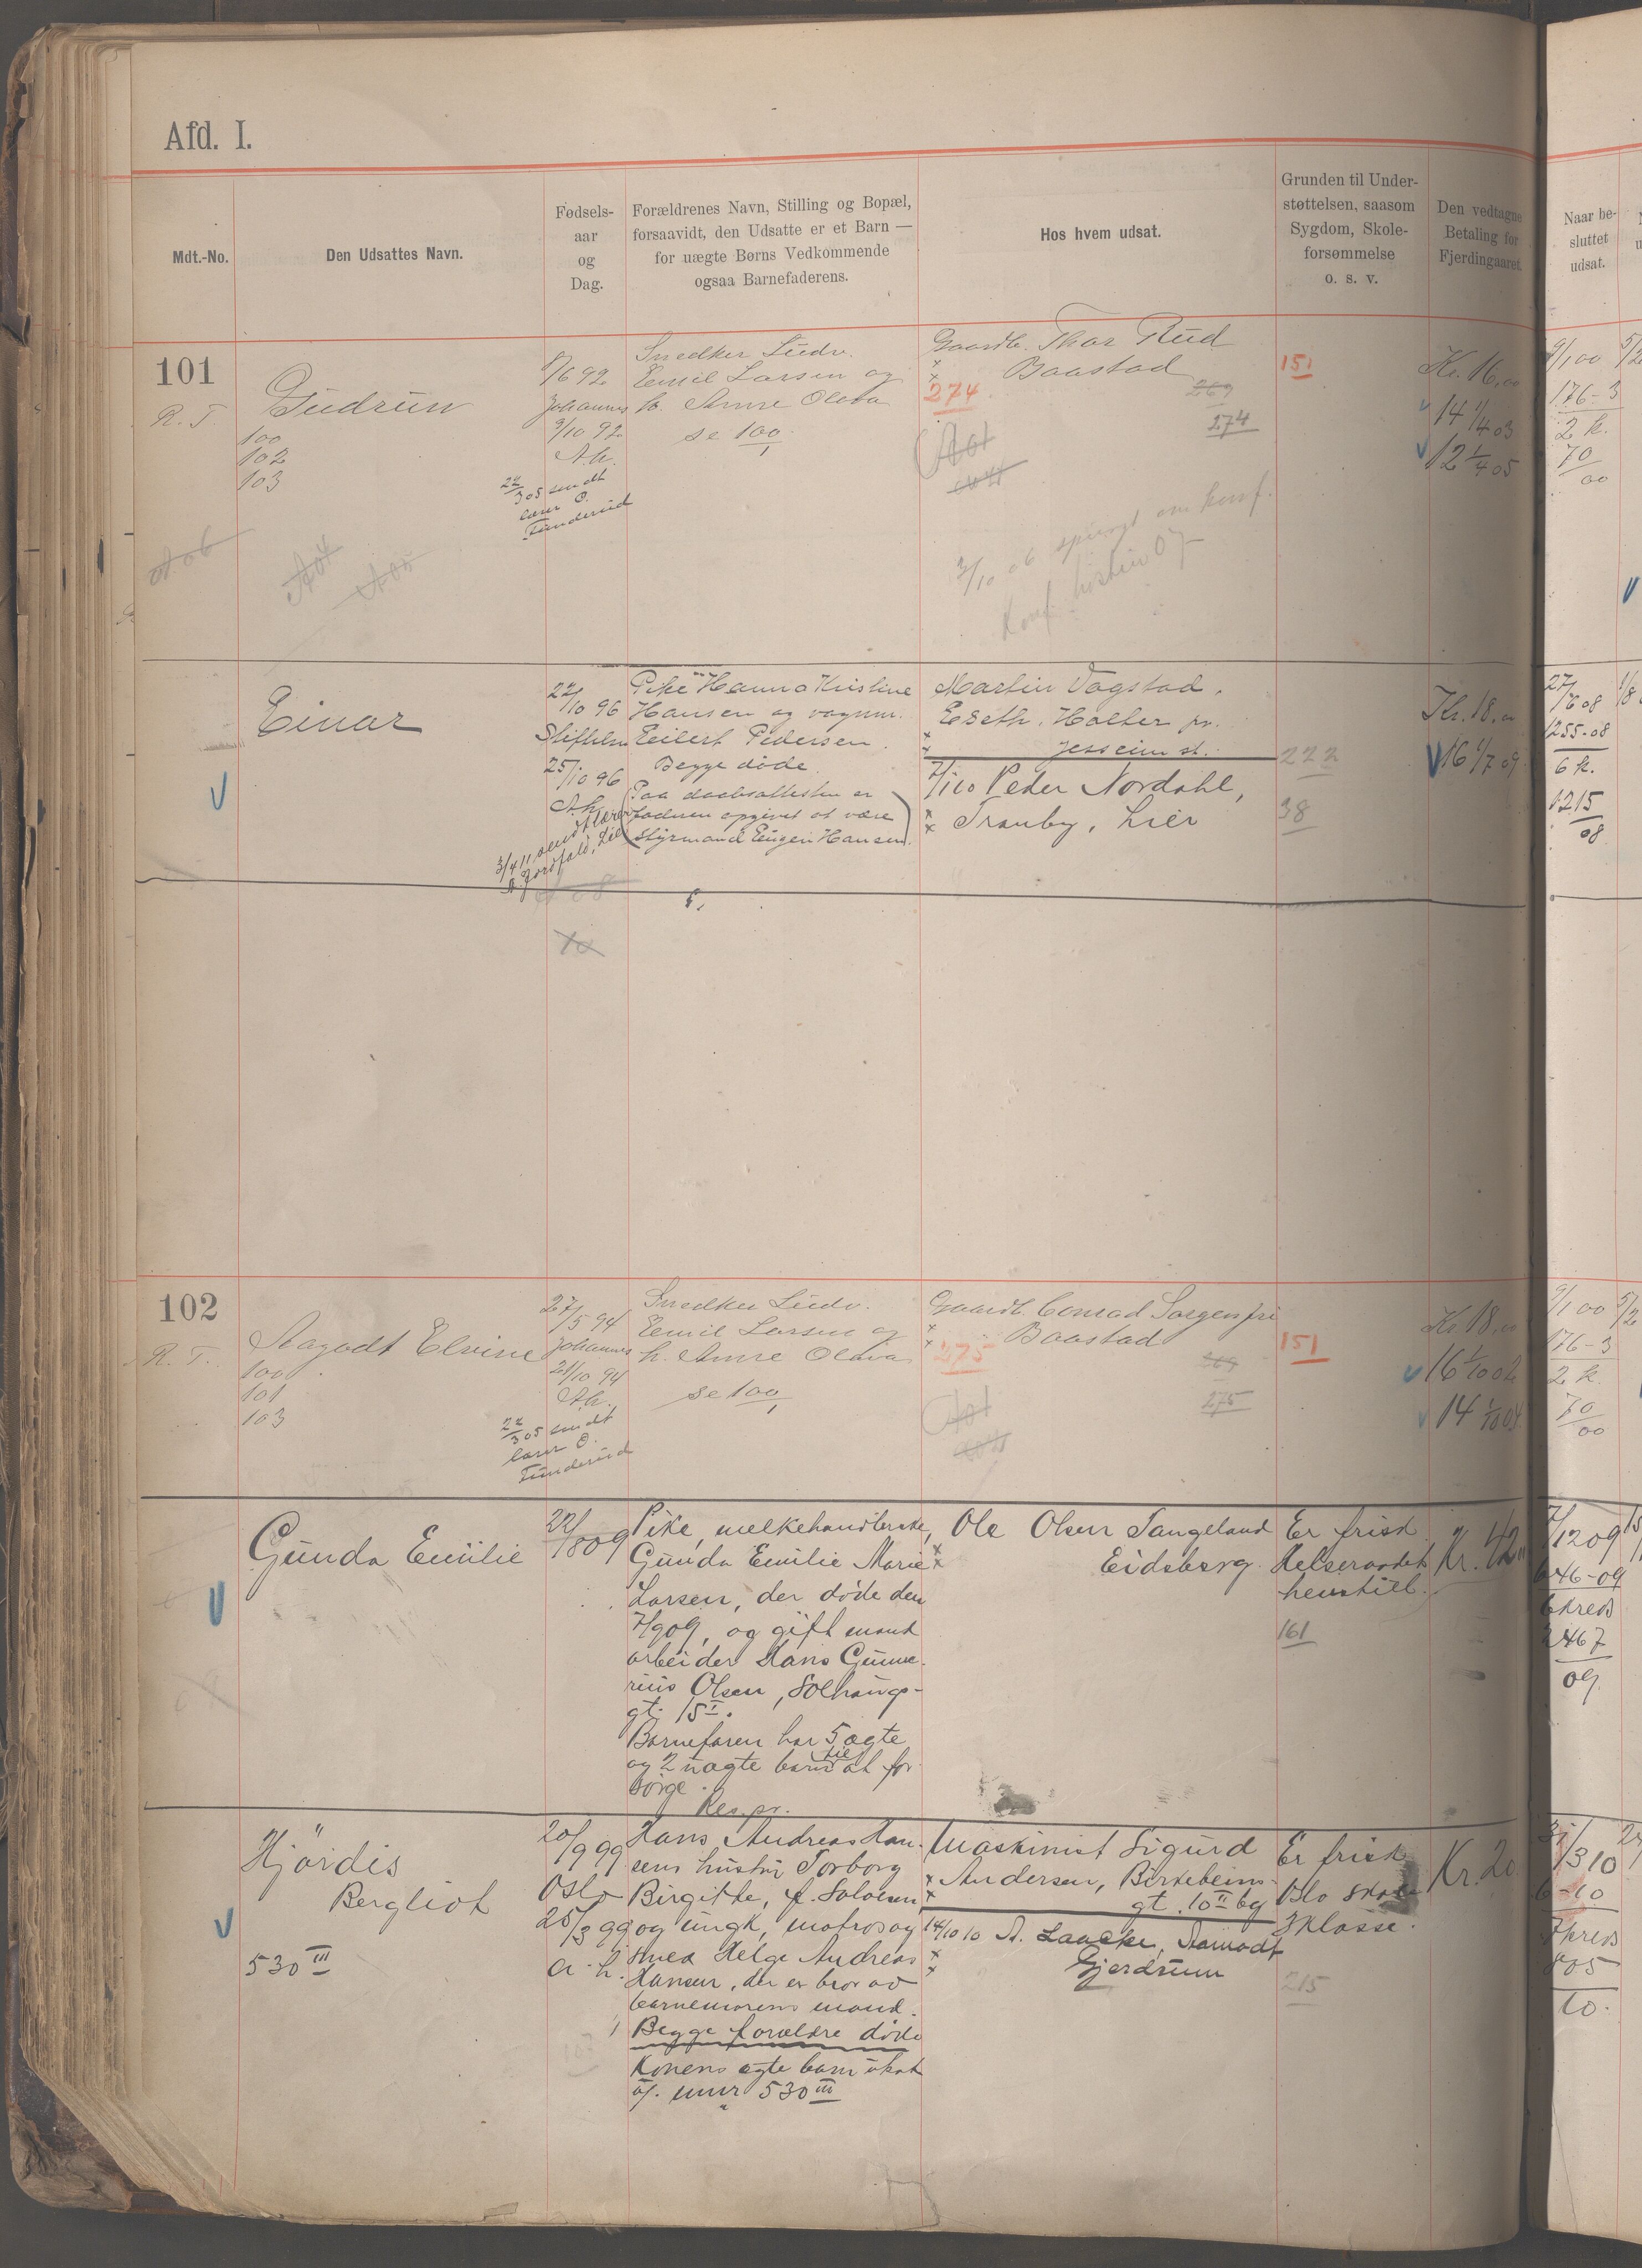 Afd. I.
Mdt.-No.
Den Udsattes Navn.
Fødsels-
aar
og
Dag.
Forældrenes Navn, Stilling og Bopæl,
forsaavidt, den Udsatte er et Barn —
for uægte Børns Vedkommende
ogsaa Barnefaderens.
Hos hvem udsat.
Grunden til Under-
støttelsen, saasom
Sygdom, Skole-
forsømmelse
o. s. v.
Den vedtagne
Betaling for
Fjerdingaaret.
Naar be-
sluttet
udsat.
101
R. T.
Gudrun
100
102
103
/6 92
Johannes
9/10 92
A.k.
22/3 05 sendt
lærer O.
Tunderud
Snedker Ludv.
Emil Larsen og
h. Anne Olava
se 100
Gaardb. Thor Rud
Baastad
274
269
274
3/10 06 spurgt om konf.
Konf. høsten 07
151
Kr. 16,00
14 1/4 03
12 1/4 05
9/1 00
176-3
2 k.
70
00
Einar
24/10 96
25/10 96
A.k.
3/4 11 sendt lærer
Pike Hanna Kristine
Hansen og vognm.
Eilert Pedersen.
Begge døde.
Paa daabsattesten er
faderen opgivet at være
styrmand Eugen Hansen.
Martin Vagstad,
Eseth. Holter pr.
Jesseim st.
7/1 10 Peder Nordahl,
Tranby, Lier
222
38
Kr. 18,00
16 1/7 09
27/6 08
1255-08
6 k.
1215
08
102
R. T.
Aagodt Elvine
100
101
103
27/5 94
Johannes
21/10 94
A.k.
22/3 05 sendt
lærer O.
Tunderud
Snedker Ludv.
Emil Larsen og
h. Anne Olava
se 100
Gaardb. Conrad Sorgenfri
Baastad
275
269
275
151
Kr. 18,00
16 1/10 02
14 1/10 04
9/1 00
176-3
2 k.
70
00
Gunda Emilie
22/8 09
Pike, melkehandlerske,
Gunda Emilie Marie
Larsen, der døde den
7/9 09, og gift mand
arbeider Hans Gunne-
rius Olsen, Solhaugs-
gt. 15 I.
Barnefaren har 5 ægte
og 2 uægte barn til at for-
sørge.
Res. pr.
Ole Olsen Tangeland
Eidsberg.
Er frisk
Helseraadets
henstill.
161
Kr. 42
7/12 09
646-09
6 kreds
2467
09.
Hjørdis
Bergliot
530 III
20/9 99
Oslo
25/3 99
a. k.
Hans Andreas Han-
sens hustru Torborg
Birgitte, f. Solvesen
og ungk, matros og
smed Helge Andreas
Hansen, der er bror av
barnemorens mand.
Begge forældre døde
Konens ægte barn utsat
af. numr 530 III
Maskinist Sigurd
Andersen, Birkebeiner-
gt. 10 II bg
14/10 10 A. Laache, Aamodt
Gjerdrum
215
Er frisk
Oslo skole
3 klasse.
Kr. 20
/3 10
6-10
7 kreds
805
10.